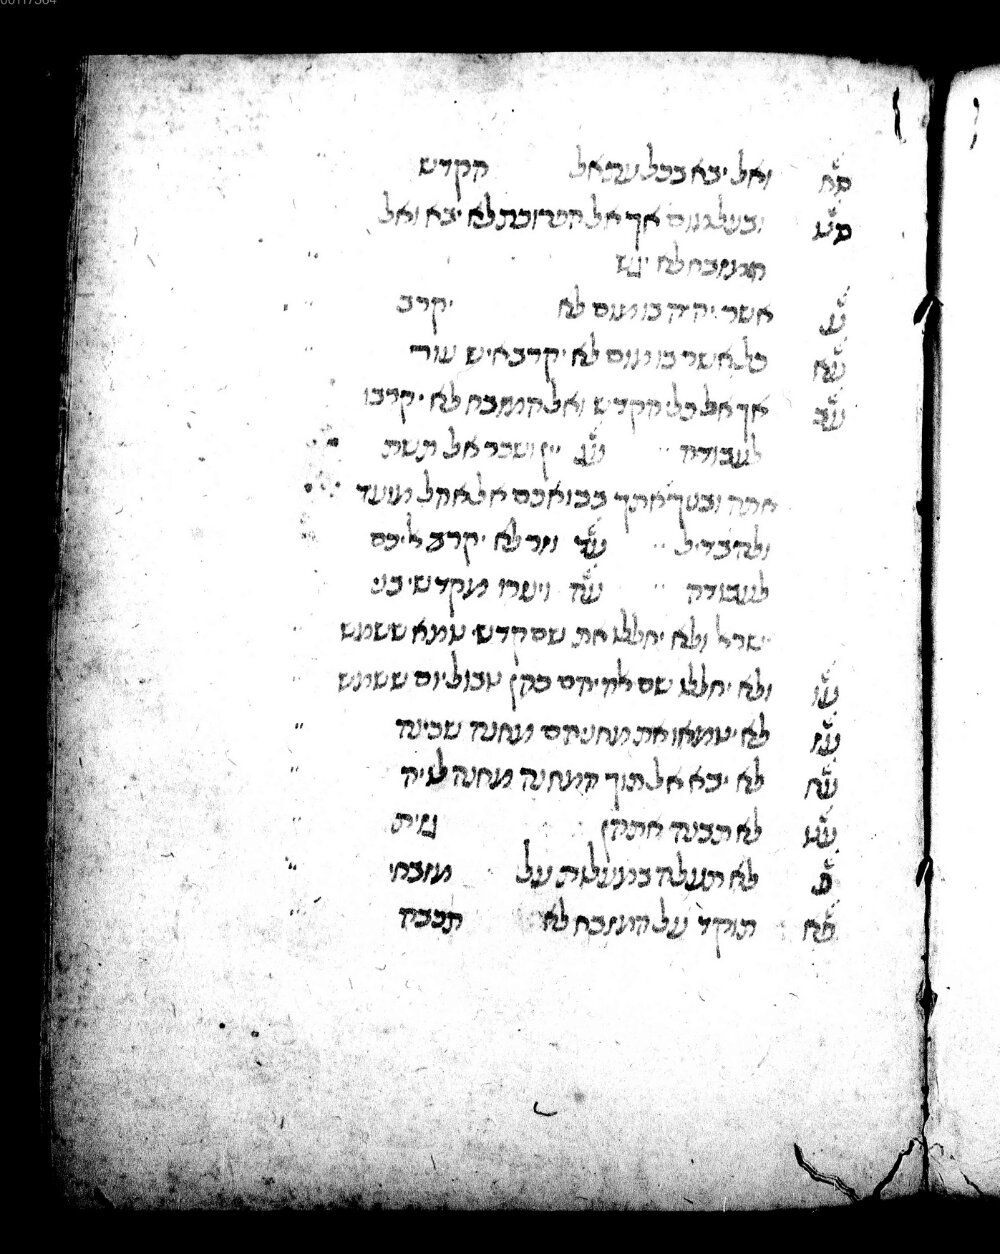 סח ואל יבא בכל עת אל הקדש
סט ובעל מום אך אל הפרוכת לא יבא ואל
המזבח לא יגש
ע אשר יהיה בו מום לא יקרב
עא כל אשר בו מום לא יקרב איש עור
עב אך אל כלי הקדש ואל המזבח לא יקרבו
לעבודה עג יין ושכר אל תשת
אתה ובניך אתך בבואכם אל אהל מועד
ולהבדיל עד וזר לא יקרב אליכם
לעבודה עה וינזרו מקדשי בני
ישראל ולא יחללו את שם קדשי טמא ששמש
עו ולא יחללו שם אלהיהם כהן טבול יום ששמש
עז לא יטמאו את מחניהם מחנה שכינה
עח לא יבא אל תוך המחנה מחנה לויה
עט לא תבנה אתהן גזית
פ לא תעלה במעלות על מזבחי
פא תוקד על המזבח לא תכבה